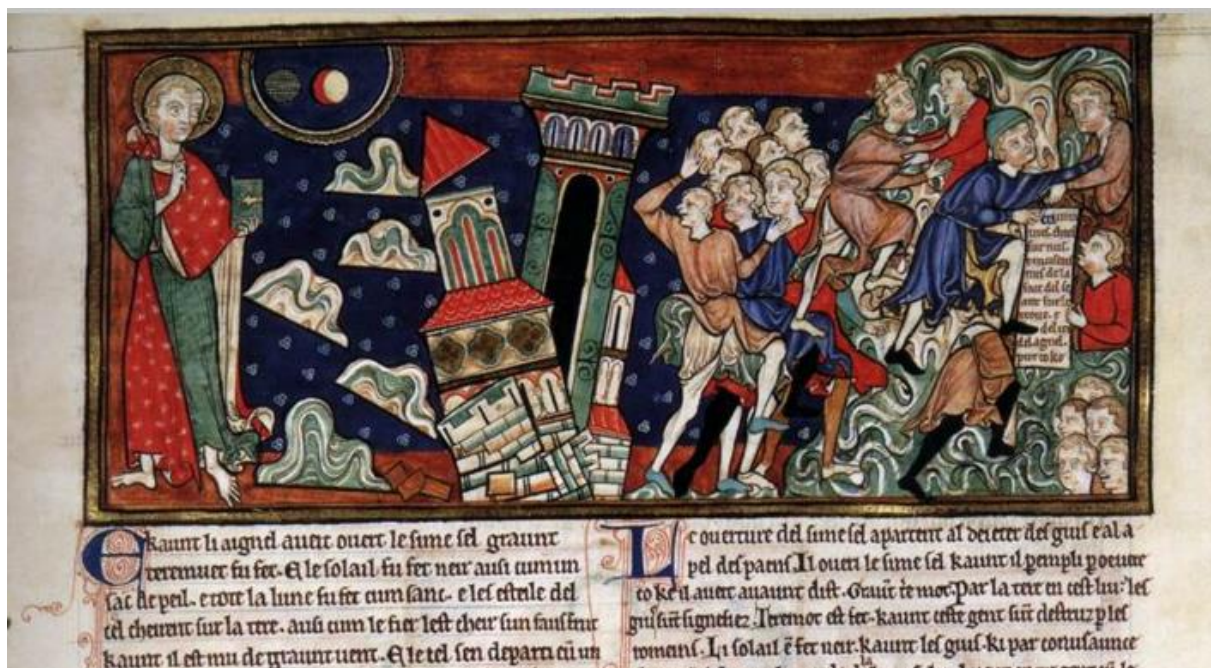 sur nus.
nus de la
face del se
ant sur le
trone. e
del ire
del agnel.
pur co ke
E kaunt li aignel aueit ouert le sime sel graunt
teremuet fu fet. E le solail fu fet neir ausi cum un
sac de peil. e tote la lune fu fet cum sanc. e les esteile del
cel cheirent sur la tere. ausi cum le fier lest cheir sun faus fruit
kaunt il est mu de graunt uent. E le cel sen departi cū un
Le ouerture del sime sel apartent al deieter des gius e al a
pel des paens. Il ouert le sime sel kaunt il pempli
co ke il aueit auaunt dist. Par la tere en cest liu: les
sūt signefiez. Teremot est fet. kaunt ceste gent sūt destruz p les
romeins. Li solail ē fet neir. kaunt les gius. ki par conusaunce